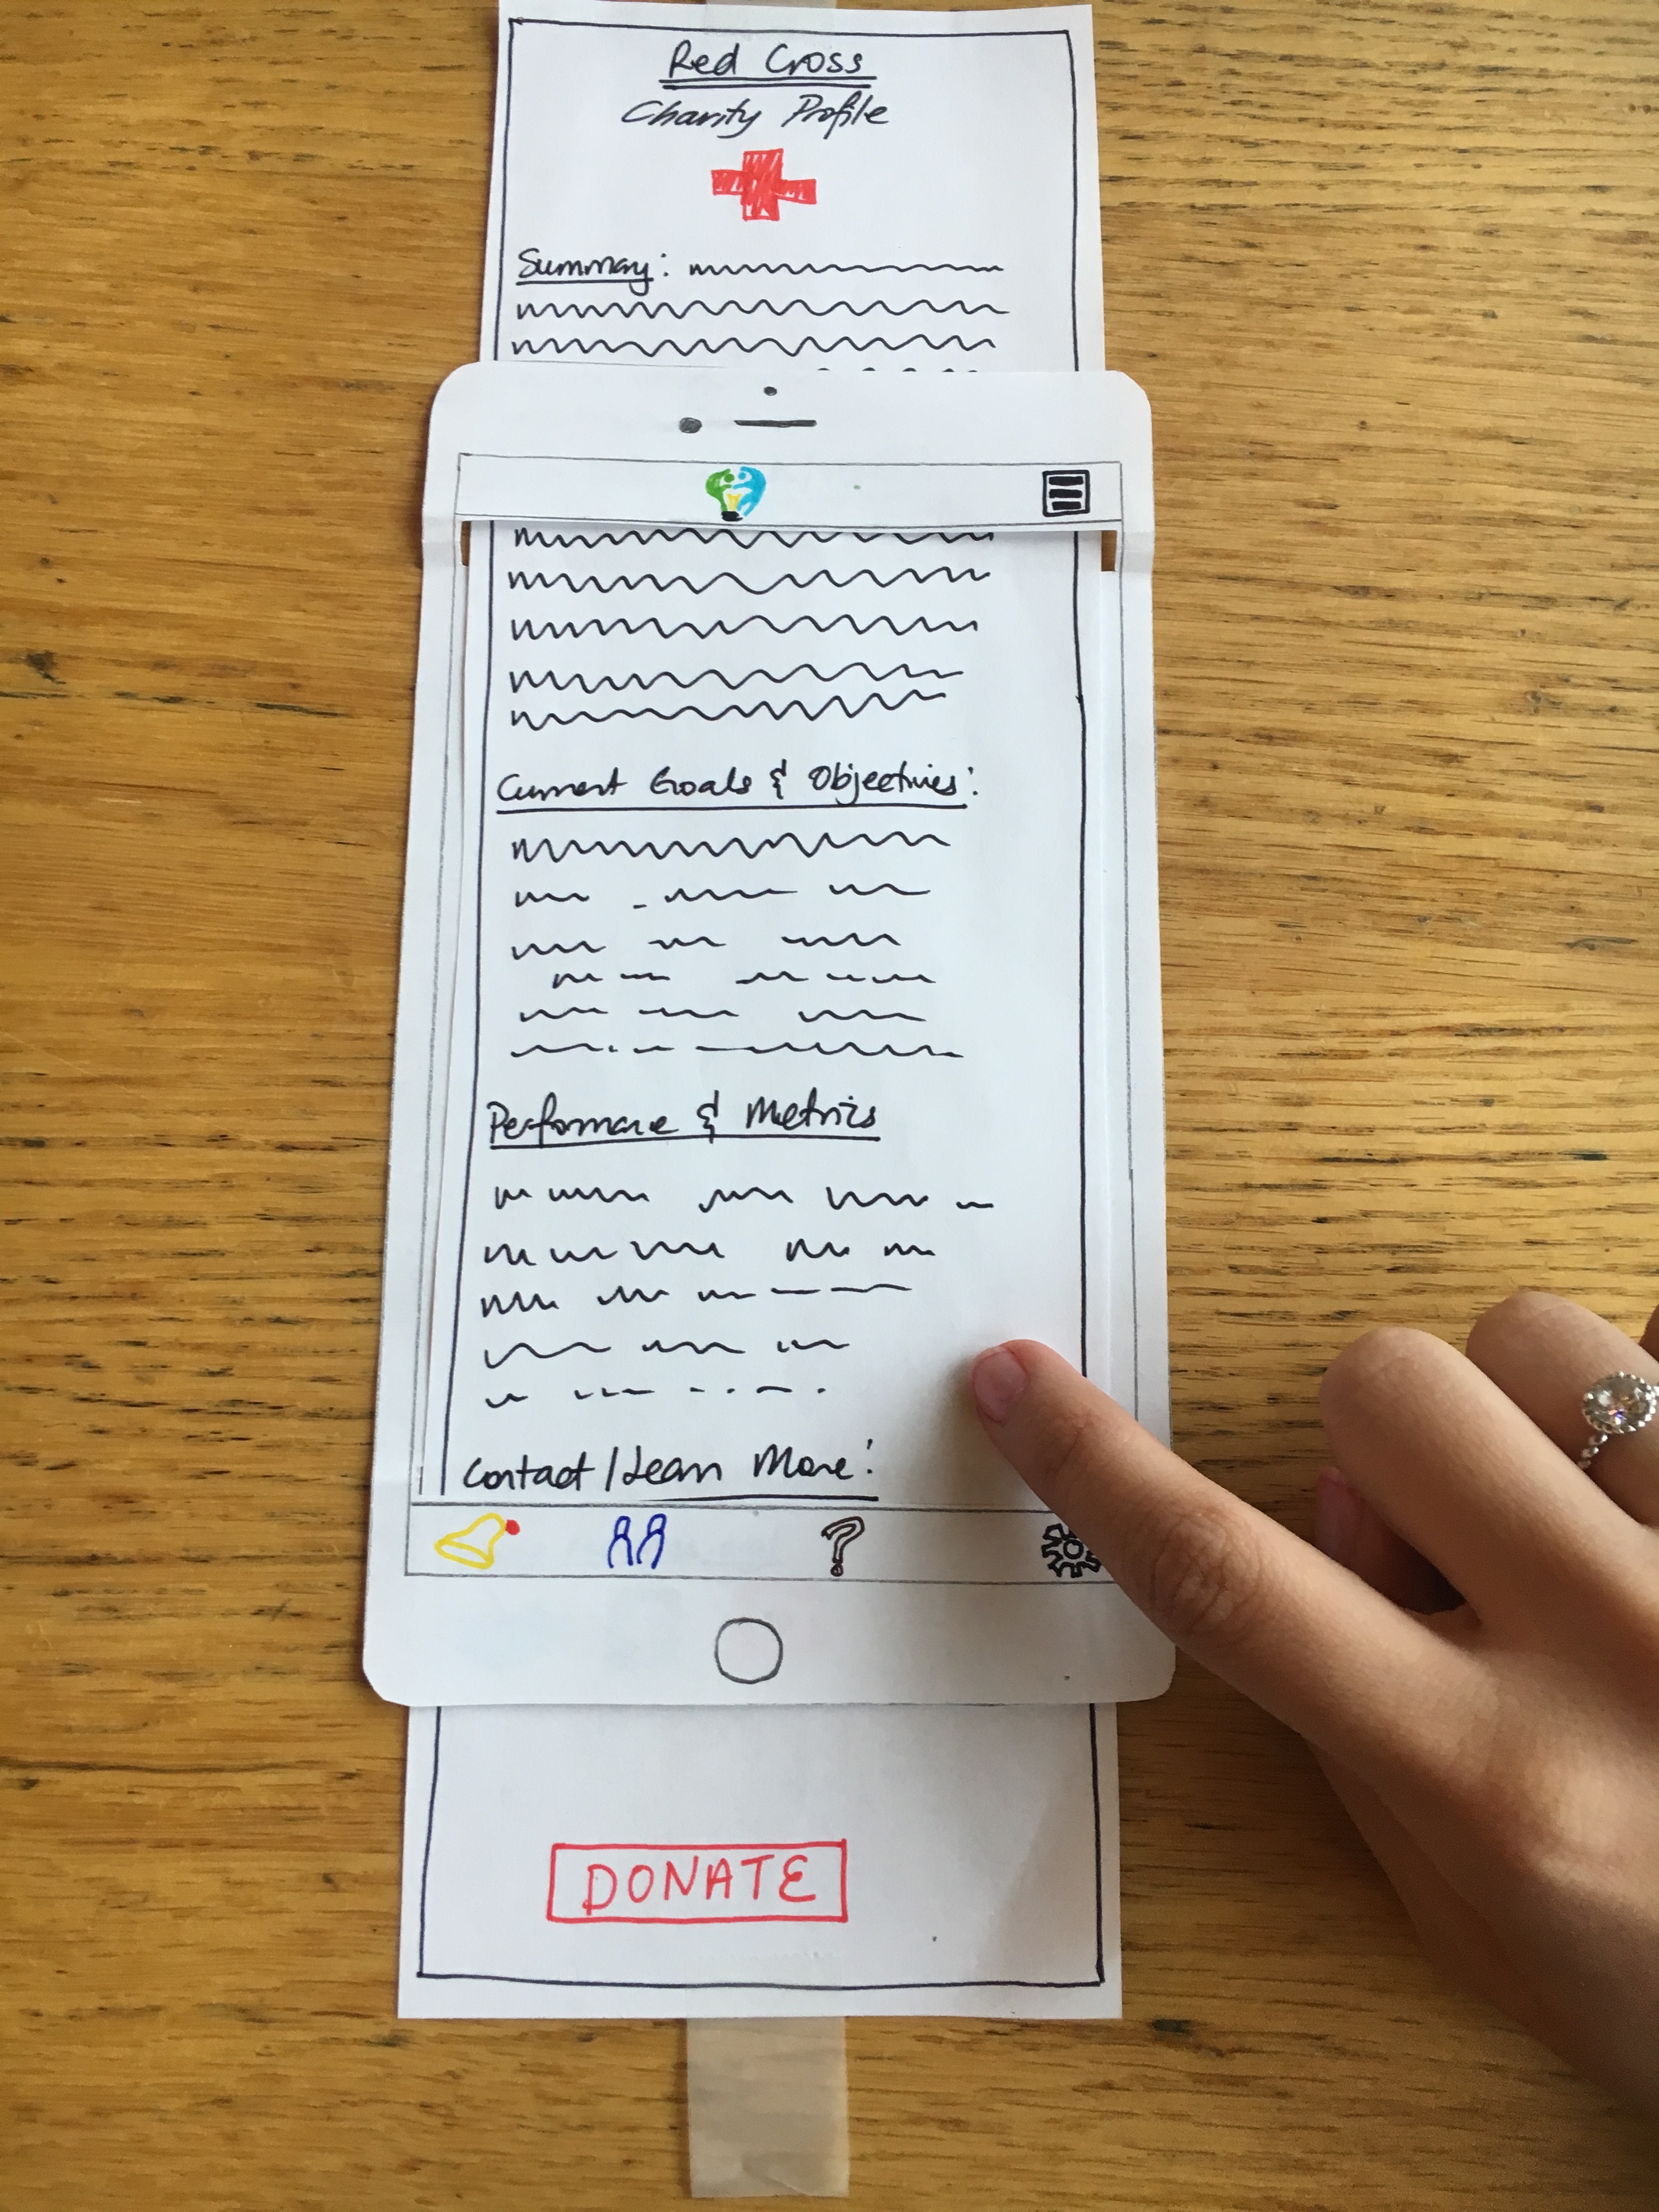 Red Cross
Charity Profile
Summary:
Current Goals & Objectives:
Performance & Metrics
Contact / Learn More:
?
DONATE